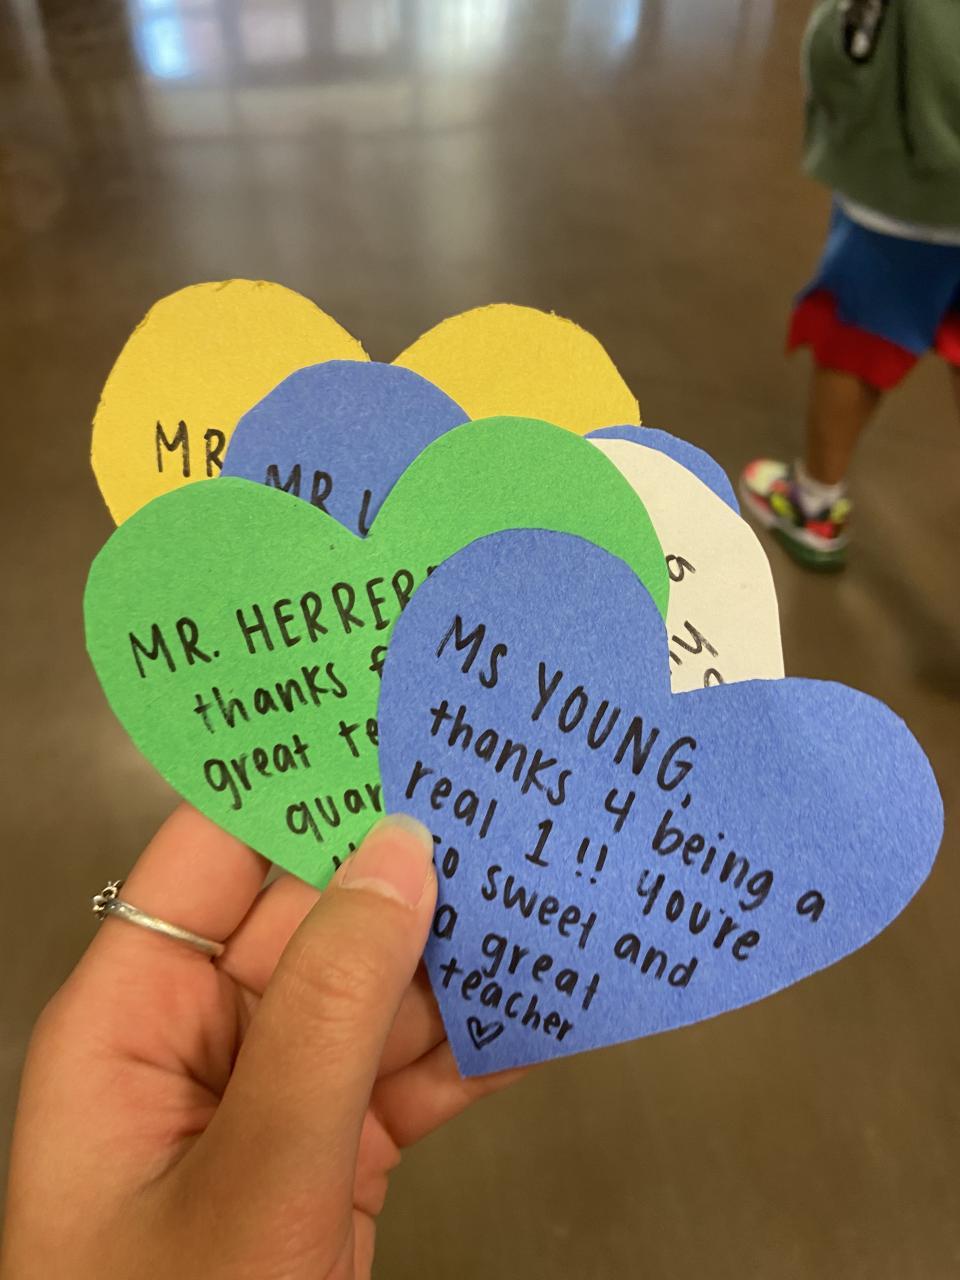 MR
MR
MR. HERRER
thanks
great
MS YOUNG,
thanks 4 being a
real 1 !! you're
so sweet and
a great
teacher
♡
a